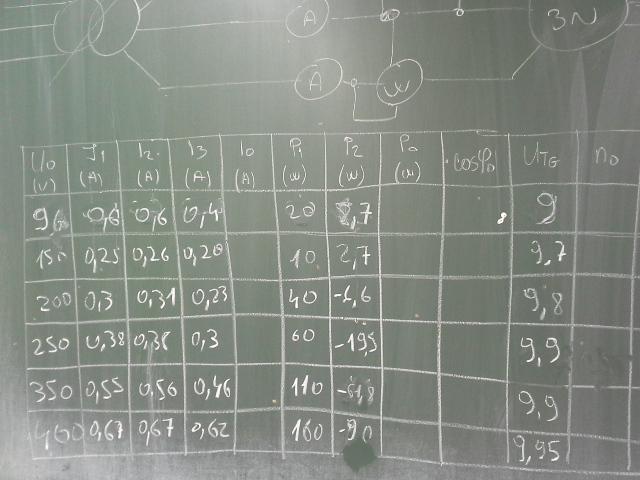 A 3N
A W
U0 J1 I2 I3 I0 P1 P2 P0 cosφ0 UTG n0
(V) (A) (A) (A) (A) (W) (W) (W)
96 0,6 0,6 0,4 20 7 9
150 0,25 0,26 0,20 10 2,7 9,7
200 0,3 0,31 0,23 40 -6,6 9,8
250 0,38 0,38 0,3 60 -19,5 9,9
350 0,55 0,56 0,46 110 9,9
400 0,67 0,67 0,62 160 -90 9,95